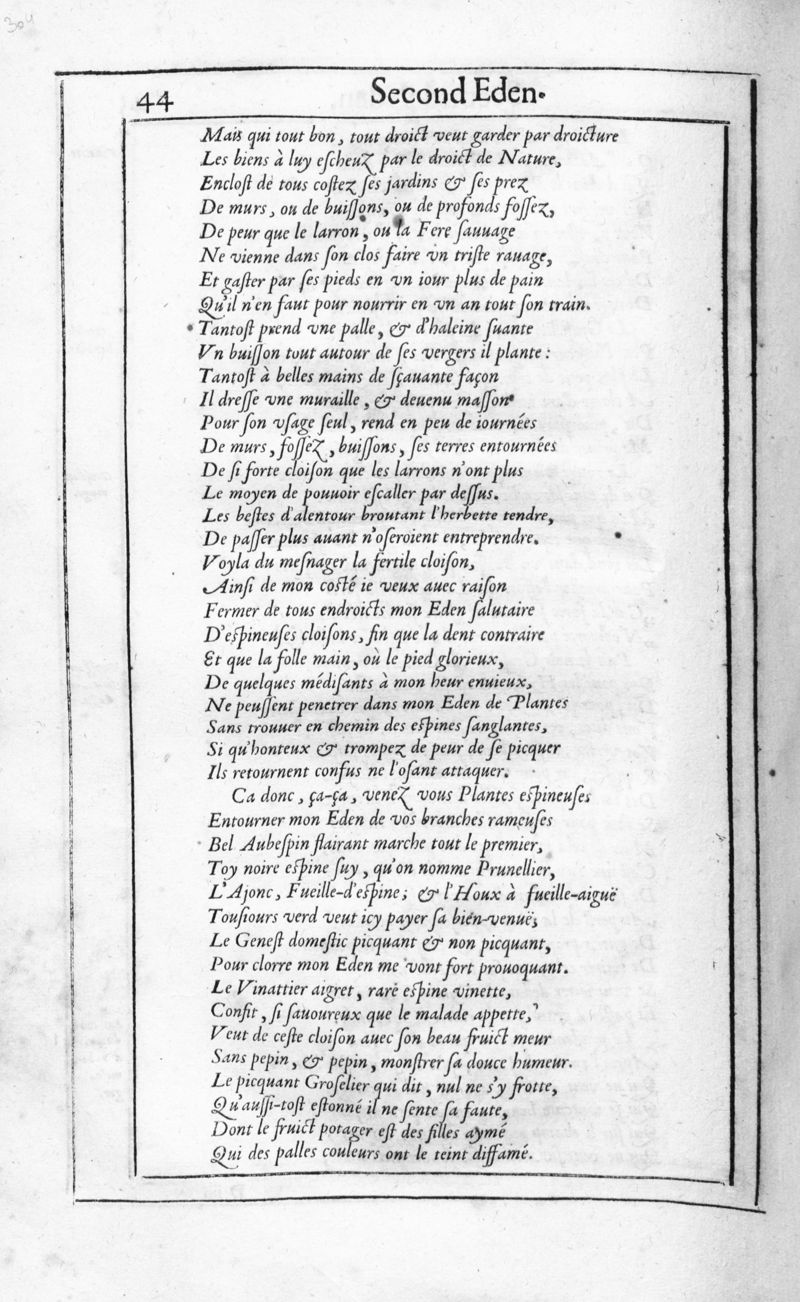 304
44 Second Eden.
Mais qui tout bon, tout droict veut garder par droicture
Les biens à luy escheuz par le droict de Nature,
Enclost de tous costez ses jardins & ses prez
De murs, ou de buissons, ou de profonds fossez,
De peur que le larron, ou la Fere sauuage
Ne vienne dans son clos faire vn triste rauage,
Et gaster par ses pieds en vn iour plus de pain
Qu'il n'en faut pour nourrir en vn an tout son train.
Tantost prend vne palle, & d'haleine suante
Vn buisson tout autour de ses vergers il plante :
Tantost à belles mains de sçauante façon
Il dresse vne muraille, & deuenu masson
Pour son vsage seul, rend en peu de iournées
De murs, fossez, buissons, ses terres entournées
De si forte cloison que les larrons n'ont plus
Le moyen de pouuoir escaller par dessus.
Les bestes d'alentour broutant l'herbette tendre,
De passer plus auant n'oseroient entreprendre.
Voyla du mesnager la fertile cloison,
Ainsi de mon costé ie veux auec raison
Fermer de tous endroicts mon Eden salutaire
D'espineuses cloisons, fin que la dent contraire
Et que la folle main, où le pied glorieux,
De quelques médisants à mon heur enuieux,
Ne peussent penetrer dans mon Eden de Plantes
Sans trouuer en chemin des espines sanglantes,
Si qu'honteux & trompez de peur de se picquer
Ils retournent confus ne l'osant attaquer.
Ca donc, ça-ça, venez vous Plantes espineuses
Entourner mon Eden de vos branches rameuses
Bel Aubespin flairant marche tout le premier,
Toy noire espine suy, qu'on nomme Prunellier,
L'Ajonc, Fueille-d'espine; & l'Houx à fueille-aiguë
Tousiours verd veut icy payer sa bien-venuë;
Le Genest domestic picquant & non picquant,
Pour clorre mon Eden me vont fort prouoquant.
Le Vinattier aigret, rare espine vinette,
Confit, si sauoureux que le malade appette,
Veut de ceste cloison auec son beau fruict meur
Sans pepin, & pepin, monstrer sa douce humeur.
Le picquant Groselier qui dit, nul ne s'y frotte,
Qu'aussi-tost estonné il ne sente sa faute,
Dont le fruict potager est des filles aymé
Qui des palles couleurs ont le teint diffamé.